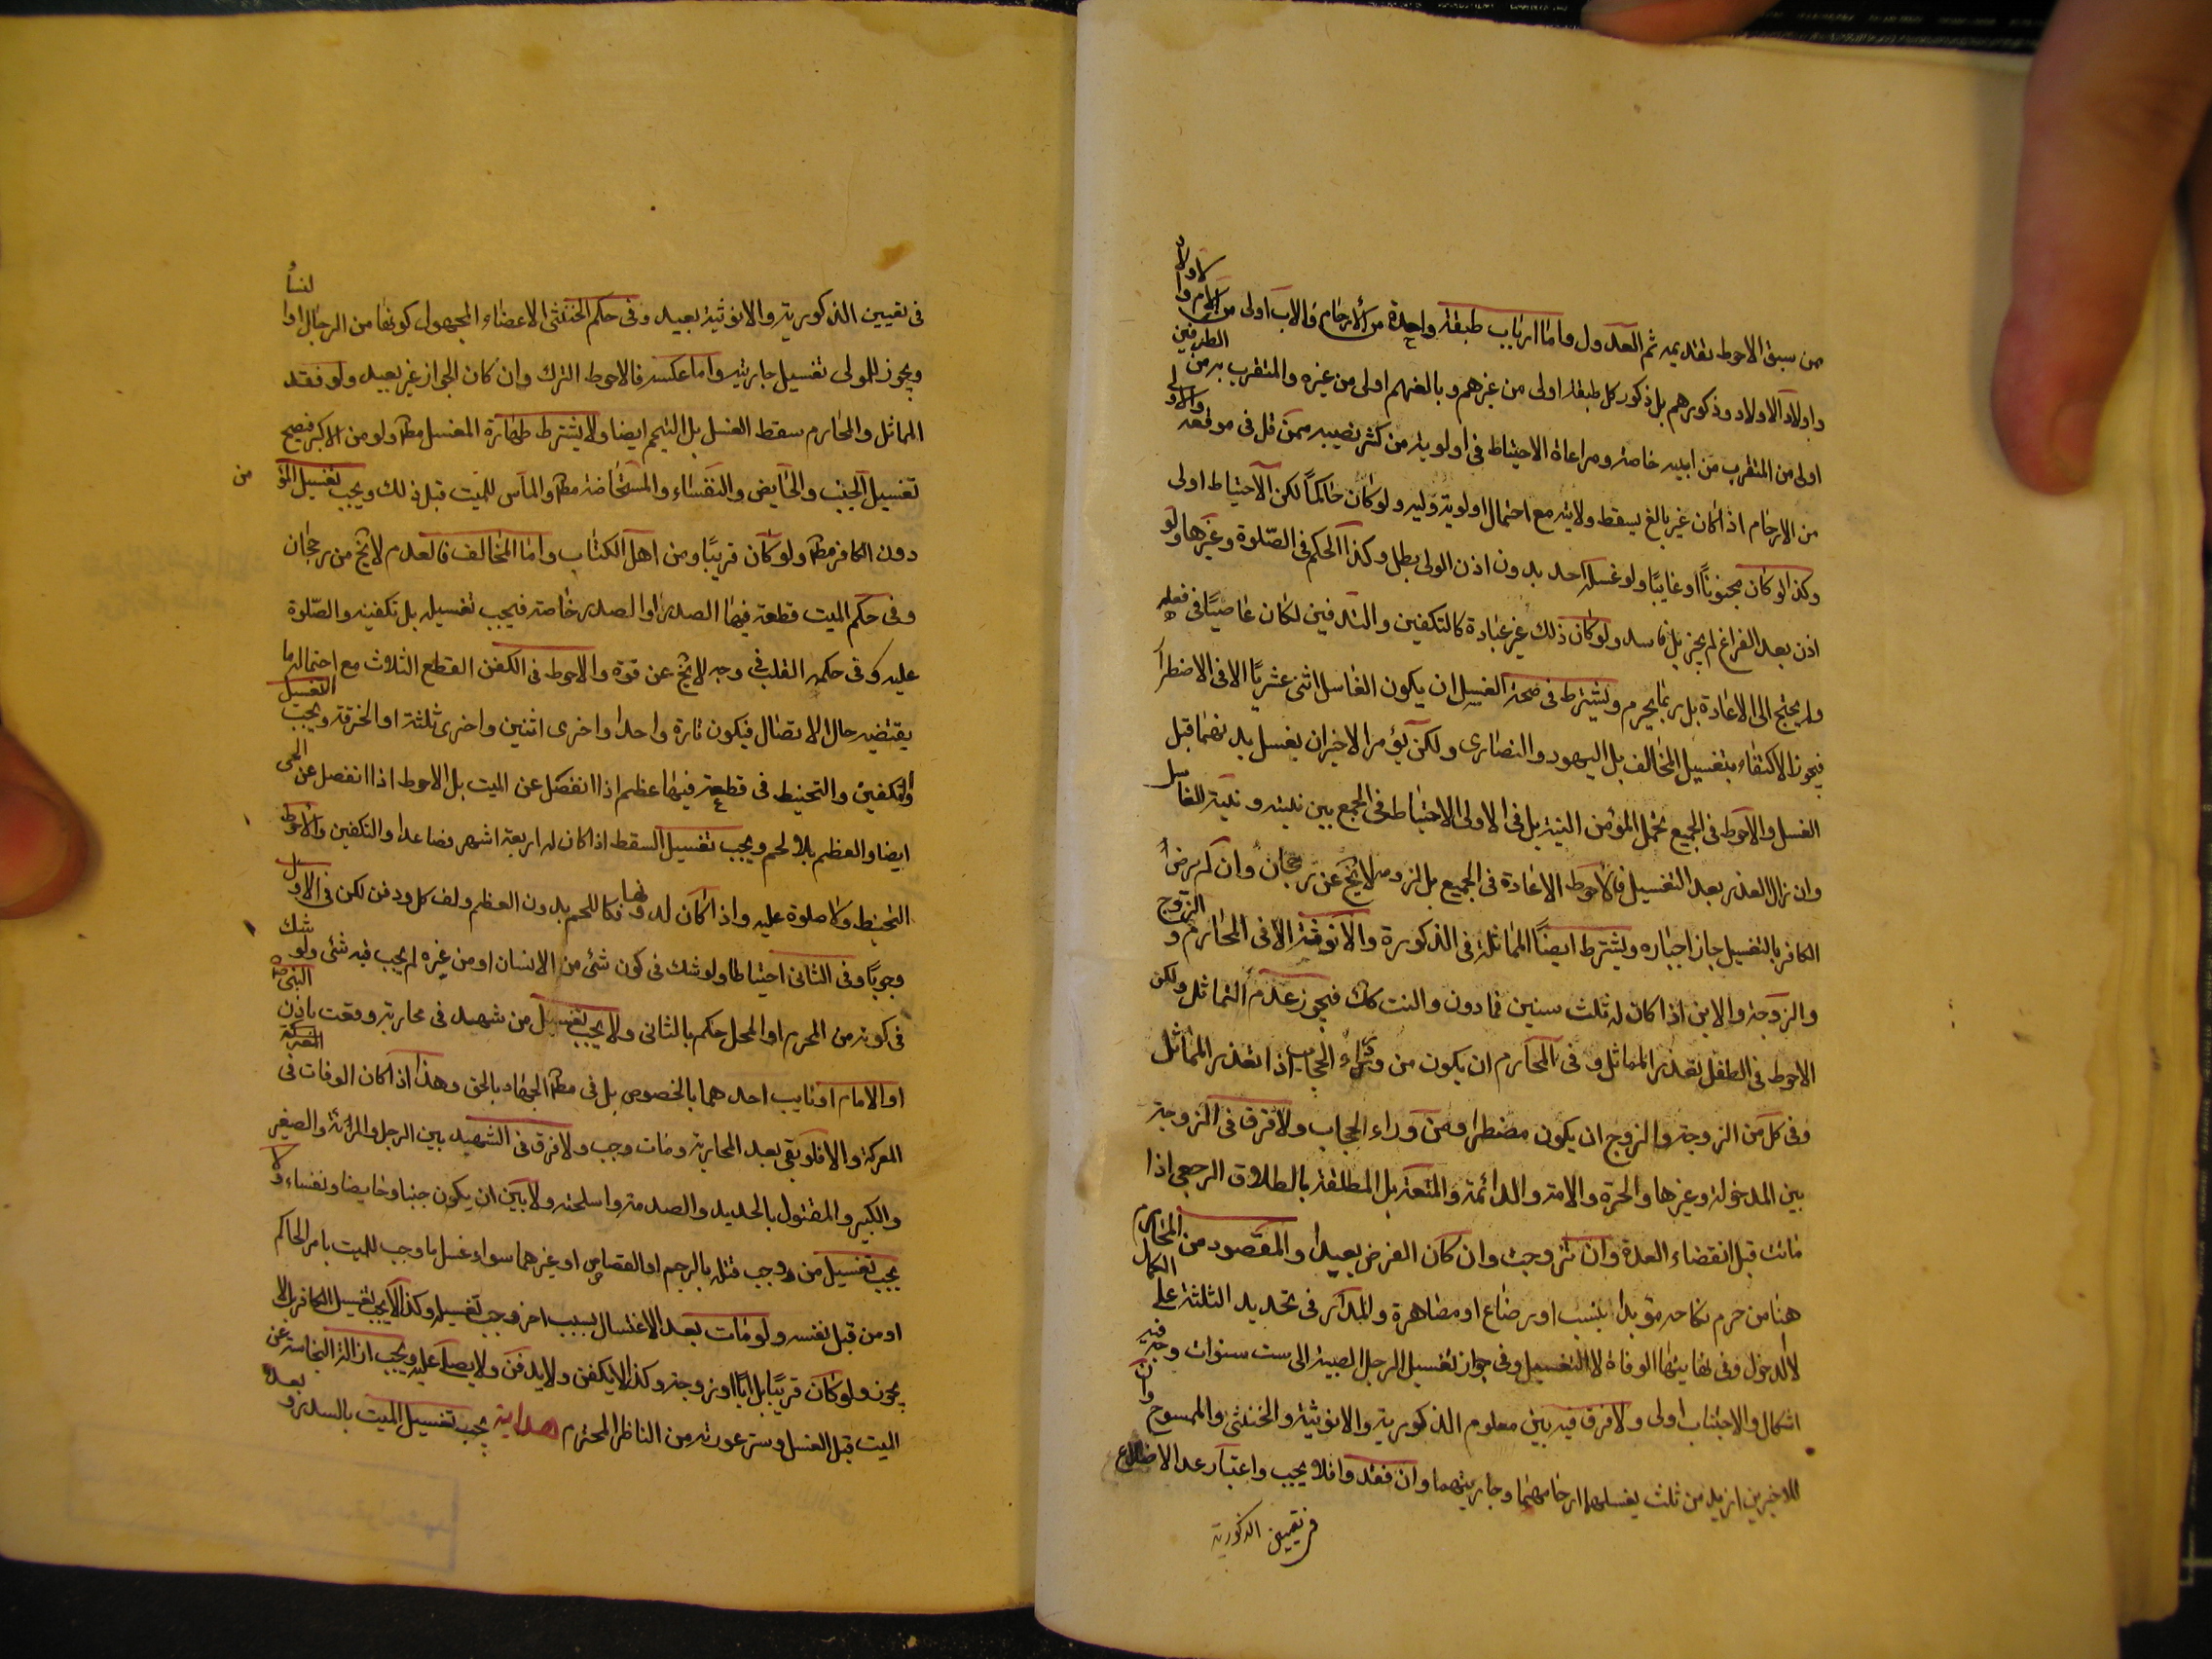 من سبق الاحوط تقديمه ثم العدول واما ارباب طبقة واحدة من الأرحام فالاب اولى من الام والاولاد
واولاد الاولاد وذكورهم بل ذكور كل طبقة اولى من غيرهم وبالغهم اولى من غيره والمتقرب به من الطرفين
اولى من المتقرب من ابيه خاصة ومراعاة الاحتياط فى اولوية من كثر نصيبه ممن قل فى موقعه والاولى
من الارحام اذا كان غير بالغ يسقط ولايته مع احتمال اولوية وليه ولو كان حاكماً لكن الاحتياط اولى
وكذا لو كان مجنوناً او غايبًا ولو غسله احد بدون اذن الولى بطل وكذا الحكم فى الصّلوة وغيرها ولو
اذن بعد الفراغ لم يجز بل فاسد ولو كان ذلك غير عبادة كالتكفين والتدفين لكان عاصيًا فى فعله
ولم يحتج الى الاعادة بل ربما يحرم ويشترط فى صحة الغسل ان يكون الغاسل اثنى عشريًا الا فى الاضطرار
فيجوز الاكتفاء بتغسيل المخالف بل اليهود والنصارى ولكن يؤمر الاخيران بغسل بدنهما قبل
الغسل والاحوط فى الجميع تحمل المؤمن النية بل فى الاولى الاحتياط فى الجمع بين نيته ونية الغاسل
وان زال العذر بعد التغسيل فالاحوط الاعادة فى الجميع بل لزومه لا يخ عن رجحان وان لم يرض
الكافر بالتغسيل جاز اجباره ويشترط ايضًا المماثلة فى الذكورة والانوثية الا فى المحارم والزوج
والزوجة والابن اذا كان له ثلث سنين فما دون والبنت كك فيجوز عدم التماثل ولكن
الاحوط فى الطفل تعذر المماثل وفى المحارم ان يكون من وراء الحجاب اذا تعذر المماثل
وفى كل من الزوجة والزوج ان يكون مضطرا ومن وراء الحجاب ولا فرق فى الزوجة
بين المدخولة وغيرها والحرة والامة والدائمة والمتعة بل المطلقة بالطلاق الرجعى اذا
ماتت قبل انقضاء العدة وان تزوجت وان كان الفرض بعيدا والمقصود من المحارم
هنا من حرم نكاحه مؤبدا بنسب او رضاع او مصاهرة والمدار فى تحديد الثلثة على الكمال
لا الدخول وفى نهايتها الوفاة لا التغسيل وفى جواز تغسيل الرجل الصبية الى ست سنوات وجه فيه
اشكال والاجتناب اولى ولا فرق فيه بين معلوم الذكورية والانوثية والخنثى والممسوح وان
للاخيرين ازيد من ثلث يغسلهما ارحامهما وجاريتهما وان فقدوا فلا يجب واعتبار عد الاضلاع
فى تعيين الذكورية
فى تعيين الذكورية والانوثية بعيد وفى حكم الخنثى الاعضاء المجهول كونها من الرجال او النساء
ويجوز للمولى تغسيل جاريته واما عكسه فالاحوط الترك وان كان الجواز غير بعيد ولو فقد
المماثل والمحارم سقط الغسل بل التيمم ايضا ولا يشترط طهارة المغسل مط ولو من الاكبر فيصح
تغسيل الجنب والحايض والنفساء والمستحاضة مط والماس للميت قبل ذلك ويجب تغسيل المؤمن
دون الكافر مط ولو كان قريبًا ومن اهل الكتاب واما المخالف فالعدم لا يخ من رجحان
وفى حكم الميت قطعة فيها الصدر او الصدر خاصة فيجب تغسيله بل تكفينه والصّلوة
عليه وفى حكمه القلب فى وجه لا يخ عن قوة والاحوط فى الكفن القطع الثلاث مع احتمال ما
يقتضيه حال الاتصال فيكون تارة واحدا واخرى اثنين واخرى ثلثة او الخرقة ويجب التغسيل
والتكفين والتحنيط فى قطعة فيها عظم اذا انفصل عن الميت بل الاحوط اذا انفصل عن الحى
ايضا والعظم بلا لحم ويجب تغسيل السقط اذا كان له اربعة اشهر فصاعدا والتكفين والاحوط
التحنيط ولا صلوة عليه واذا كان له دونها فكاللحم بدون العظم ولف كل ودفن لكن فى الاول
وجوبًا وفى الثانى احتياطا ولو شك فى كون شئ من الانسان او من غيره لم يجب فيه شئ ولو شك
فى كونه من المحرم او المحل حكم بالثانى ولا يجب تغسيل من شهيد فى محاربة وقعت باذن النبى ص
او الامام او نايب احدهما بالخصوص بل فى مط الجهاد بالحق وهذا اذا كان الوفات فى المعركة
المعركة والا فلو بقى بعد المحاربة ومات وجب ولا فرق فى الشهيد بين الرجل والمرائة والصغير
والكبير والمقتول بالحديد والصدمة واسلحته ولا بين ان يكون جنبا وحايضا ونفساء ولا
يجب تغسيل من وجب قتله بالرجم او القصاص او غيرهما سواء غسل ما وجب للميت بامر الحاكم
او من قبل نفسه ولو مات بعد الاغتسال بسبب اخر وجب تغسيله وكذا لا يجب تغسيل الكافر بل لا
يجوز ولو كان قريبًا بل ابًا او زوجة وكذا لا يكفن ولا يدفن ولا يصلى عليه ويجب ازالة النجاسة عن
الميت قبل الغسل وستر عورته من الناظر المحترم هداية يجب تغسيل الميت بالسدر وبعده